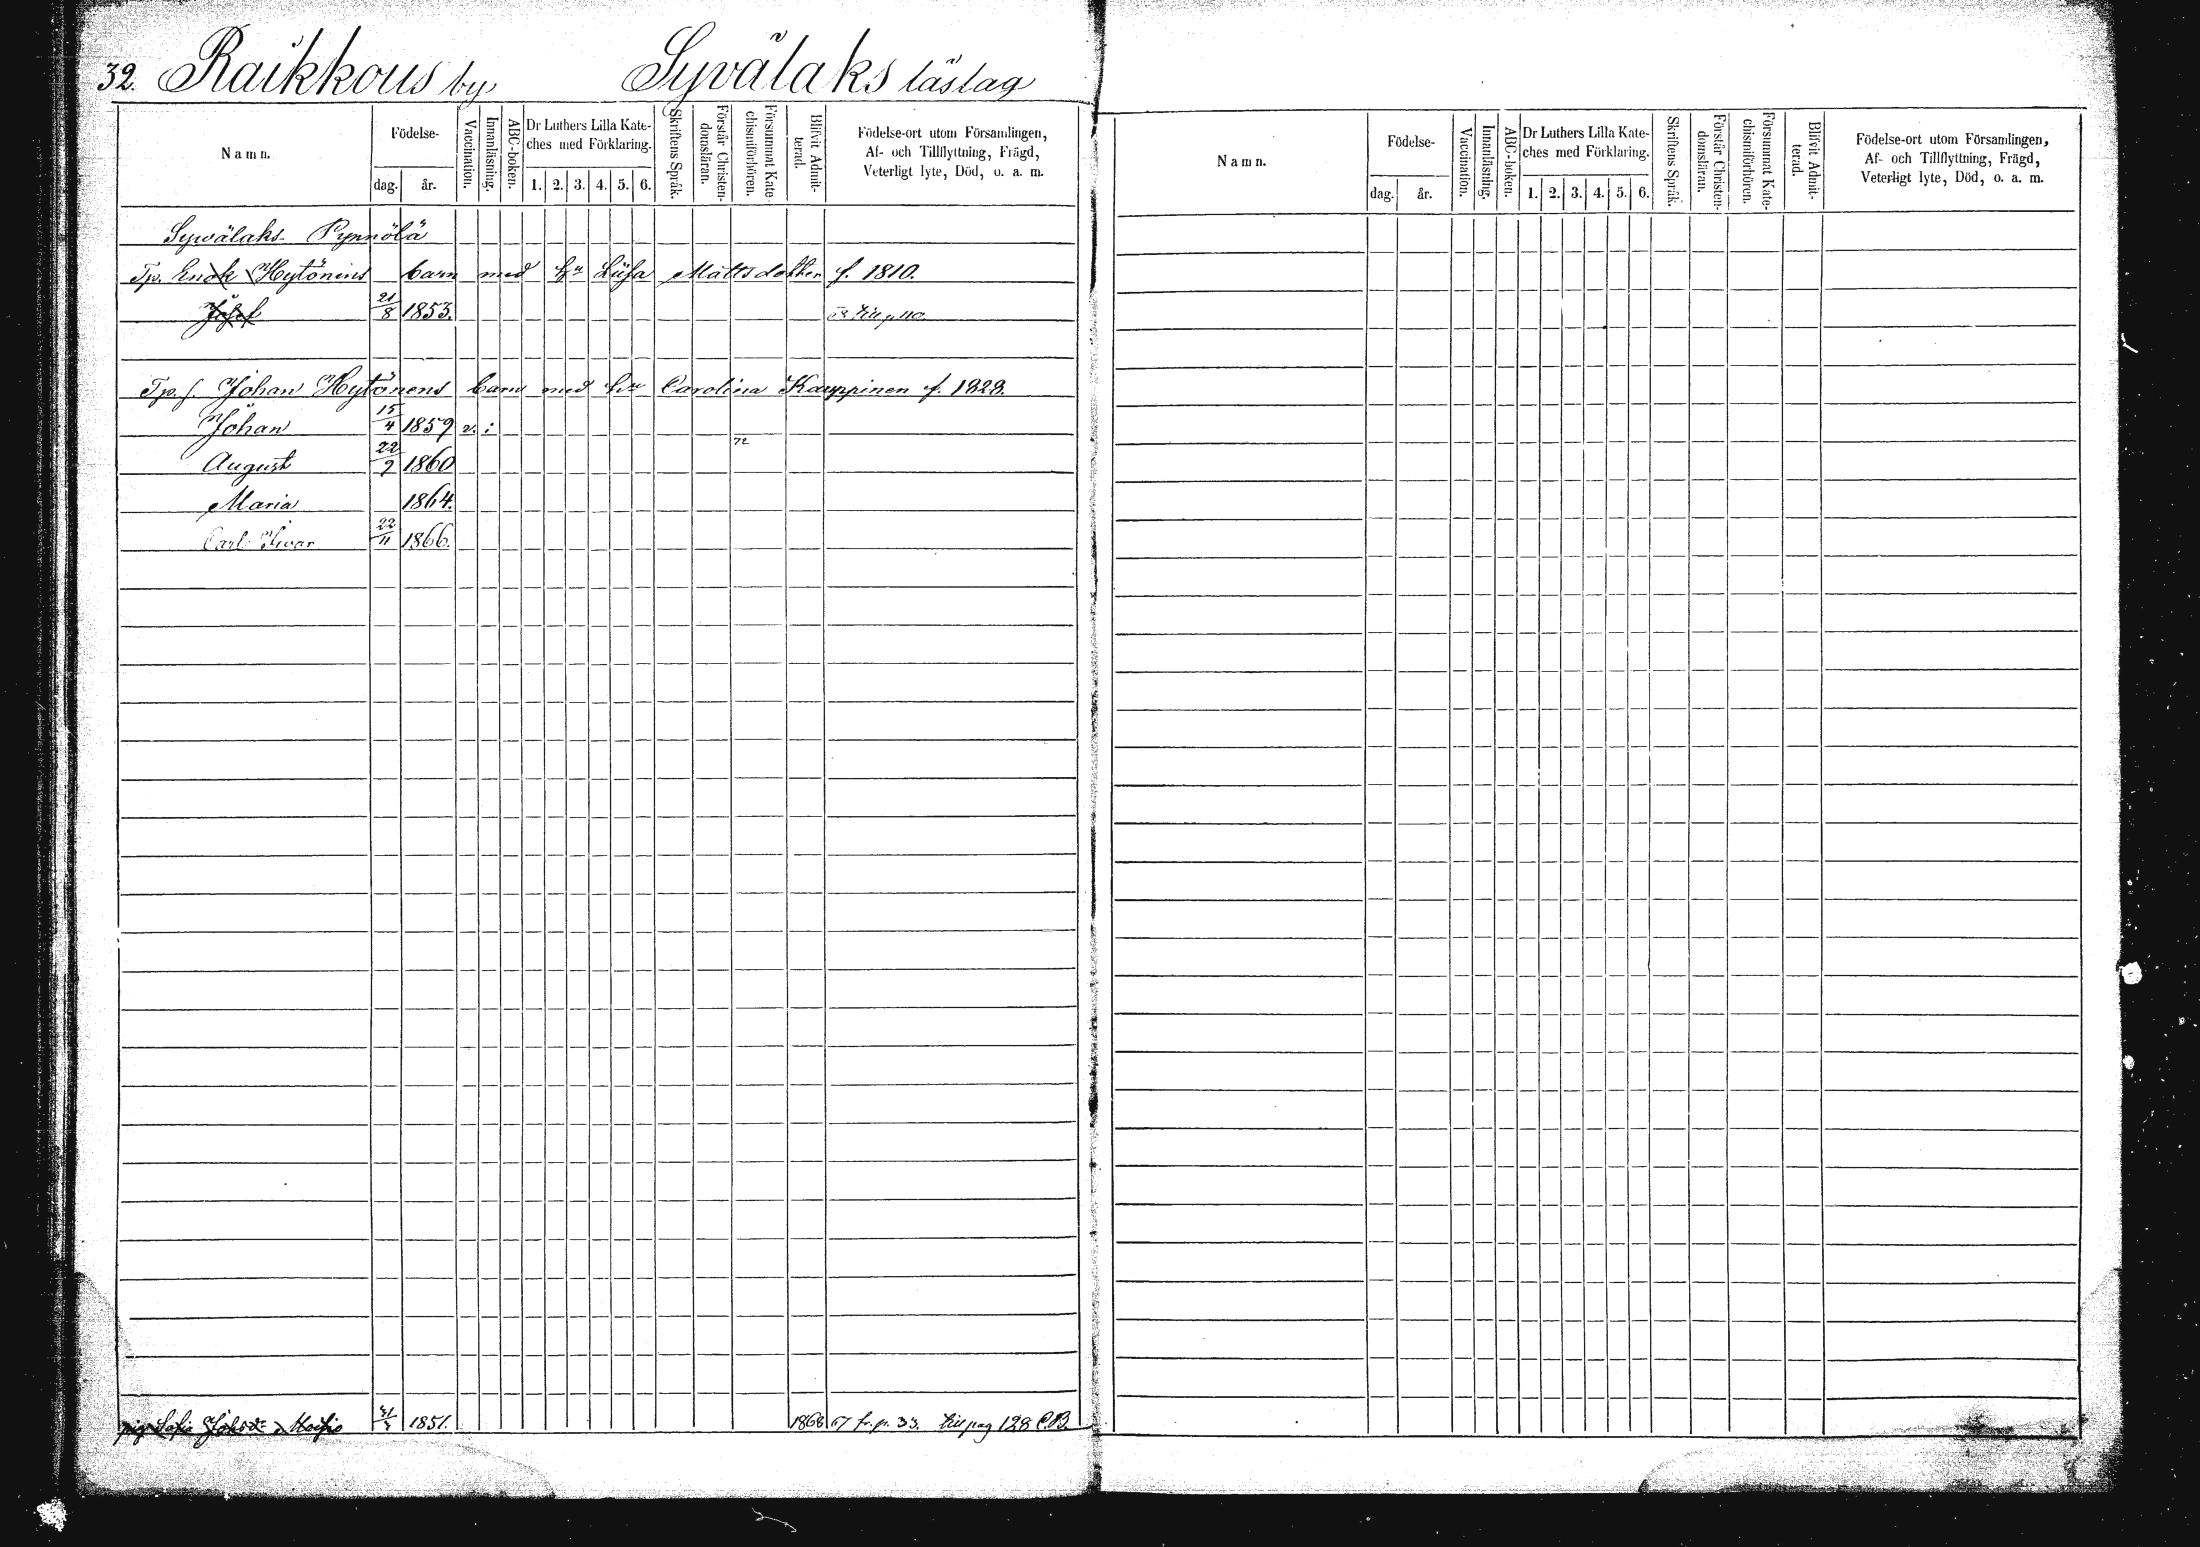 32. Raikkous by Syvälaks läslag
Namn.
Födelse-
dag. år.
Vaccination.
Innanläsning.
ABC-boken.
Dr Luthers Lilla Kate-
ches med Förklaring.
1. 2. 3. 4. 5. 6.
Skriftens Språk.
Förstår Christen-
domsläran.
Försummat Kate-
chismiförhören.
Blifvit Admit-
terad.
Födelse-ort utom Församlingen,
Af- och Tillflyttning, Frägd,
Veterligt lyte, Död, o. a. m.
Syvälaks Pynnölä
Tp. Enok Hytönens barn med hu Lüsa Mattsdotter f. 1810.
Josef 21/8 1853. till p. 110.
Tp. f. Johan Hytönens barn med hu Carolina Kauppinen f. 1828.
Johan 15/4 1859 v. i
72
August 22/9 1860
Maria 1864.
Carl Iivar 22/11 1866.
pig. Sofia 1851. 1868 67 fr. p. 33. till pag 128 C.B.
Namn.
Födelse-
dag. år.
Vaccination.
Innanläsning.
ABC-boken.
Dr Luthers Lilla Kate-
ches med Förklaring.
1. 2. 3. 4. 5. 6.
Skriftens Språk.
Förstår Christen-
domsläran.
Försummat Kate-
chismiförhören.
Blifvit Admit-
terad.
Födelse-ort utom Församlingen,
Af- och Tillflyttning, Frägd,
Veterligt lyte, Död, o. a. m.